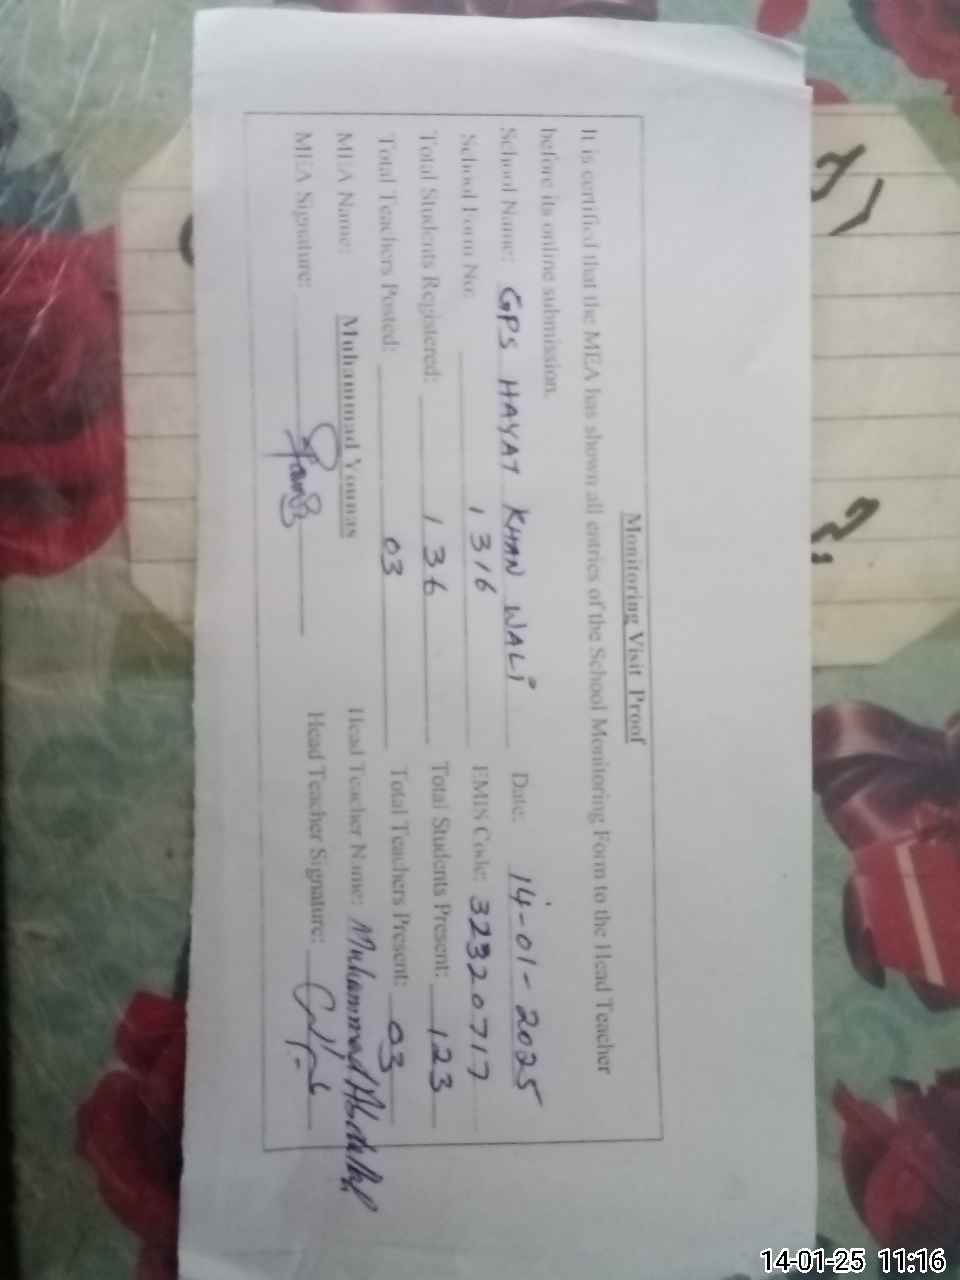 Monitoring Visit Proof
It is certified that the MEA has shown all entries of the School Monitoring Form to the Head Teacher
before its online submission.
School Name: GPS HAYAT KHAN WALI Date: 14-01-2025
School Form No. 1316 EMIS Code: 32320717
Total Students Registered: 136 Total Students Present: 123
Total Teachers Posted: 03 Total Teachers Present: 03
MEA Name: Muhammad Younas Head Teacher Name: Muhammad Abdullah
MEA Signature: Head Teacher Signature:
14-01-25 11:16